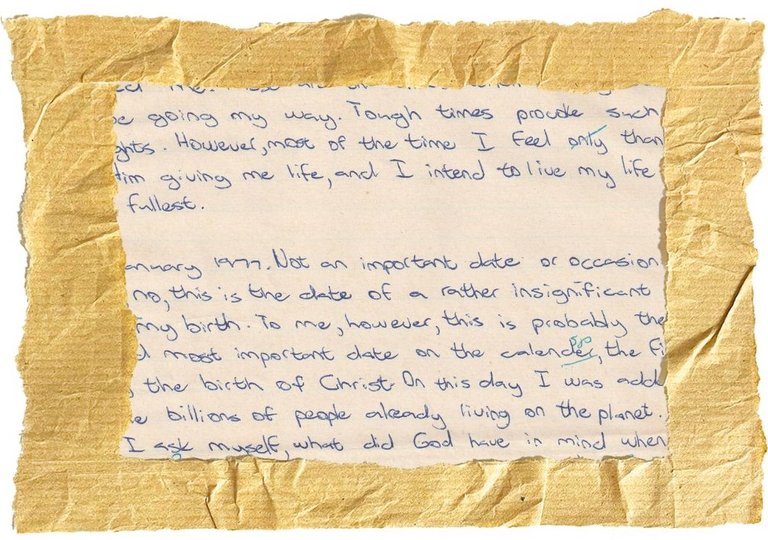 be going my way. Tough times provoke such
ghts. However, most of the time I feel only than
Him giving me life, and I intend to live my life
fullest.
anuary 1977. Not an important date or occasion
no, this is the date of a rather insignificant
my birth. To me, however, this is probably the
most important date on the calender, the fi
the birth of Christ. On this day I was add
e billions of people already living on the planet.
I ask myself, what did God have in mind when